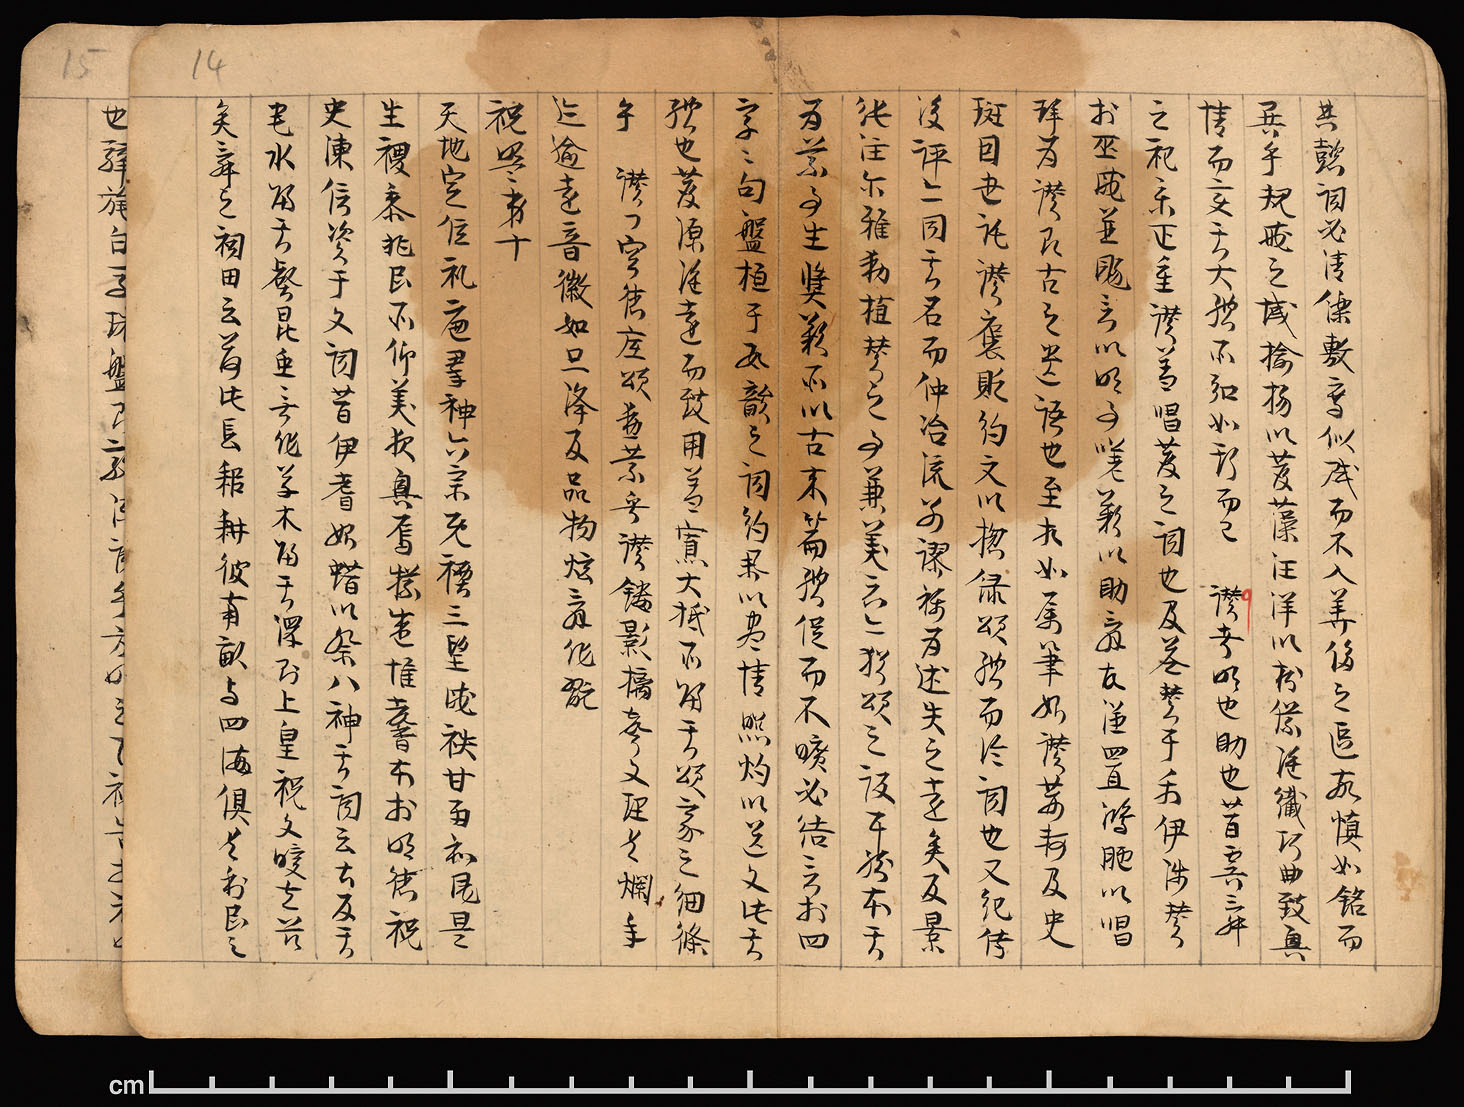 其懿詞必清鑠敷寫似賦而不入華侈之區敬慎如銘而
異乎規戒之域揄揚以發藻汪洋以樹儀唯纖巧曲致與
情而變其大體所弘如斯而已　讚者明也助也昔虞舜
之祀樂正重讚蓋唱發之詞也及益讚于禹伊陟讚
於巫咸並颺言以明事嗟嘆以助辭故漢置鴻臚以唱
拜為讚即古之遺語也至相如屬筆始讚荊軻及史
班因史託讚褒貶約文以揔錄頌體而論詞也又紀傳
後評亦同其名而仲治流別謬稱為述失之遠矣及景
純注爾雅動植讚之事兼美惡亦猶頌之變耳然本其
為義事生獎嘆所以古來篇體促而不曠必結言於四
字之句盤桓于數韻之詞約舉以盡情照灼以送文此其
體也發源雖遠而致用蓋寡大抵所歸其頌家之細條
乎　讚曰容德底頌勳業垂讚鏤影摛聲文理有爛年
迹逾遠音徽如旦降及品物炫辭作翫
祝盟第十
天地定位祀遍羣神六宗既禋三望咸秩甘雨和風是
生稷黍兆民所仰美報興焉犧盛惟馨本於明德祝
史陳信資乎文詞昔伊耆始蜡以祭八神其詞云土反其
宅水歸其壑昆蟲無作草木歸其澤則上皇祝文爰在茲
矣舜之祠田云荷此長耜耕彼南畝與四海俱有利民之
也騂旄白馬珠盤
14
15
9
cm